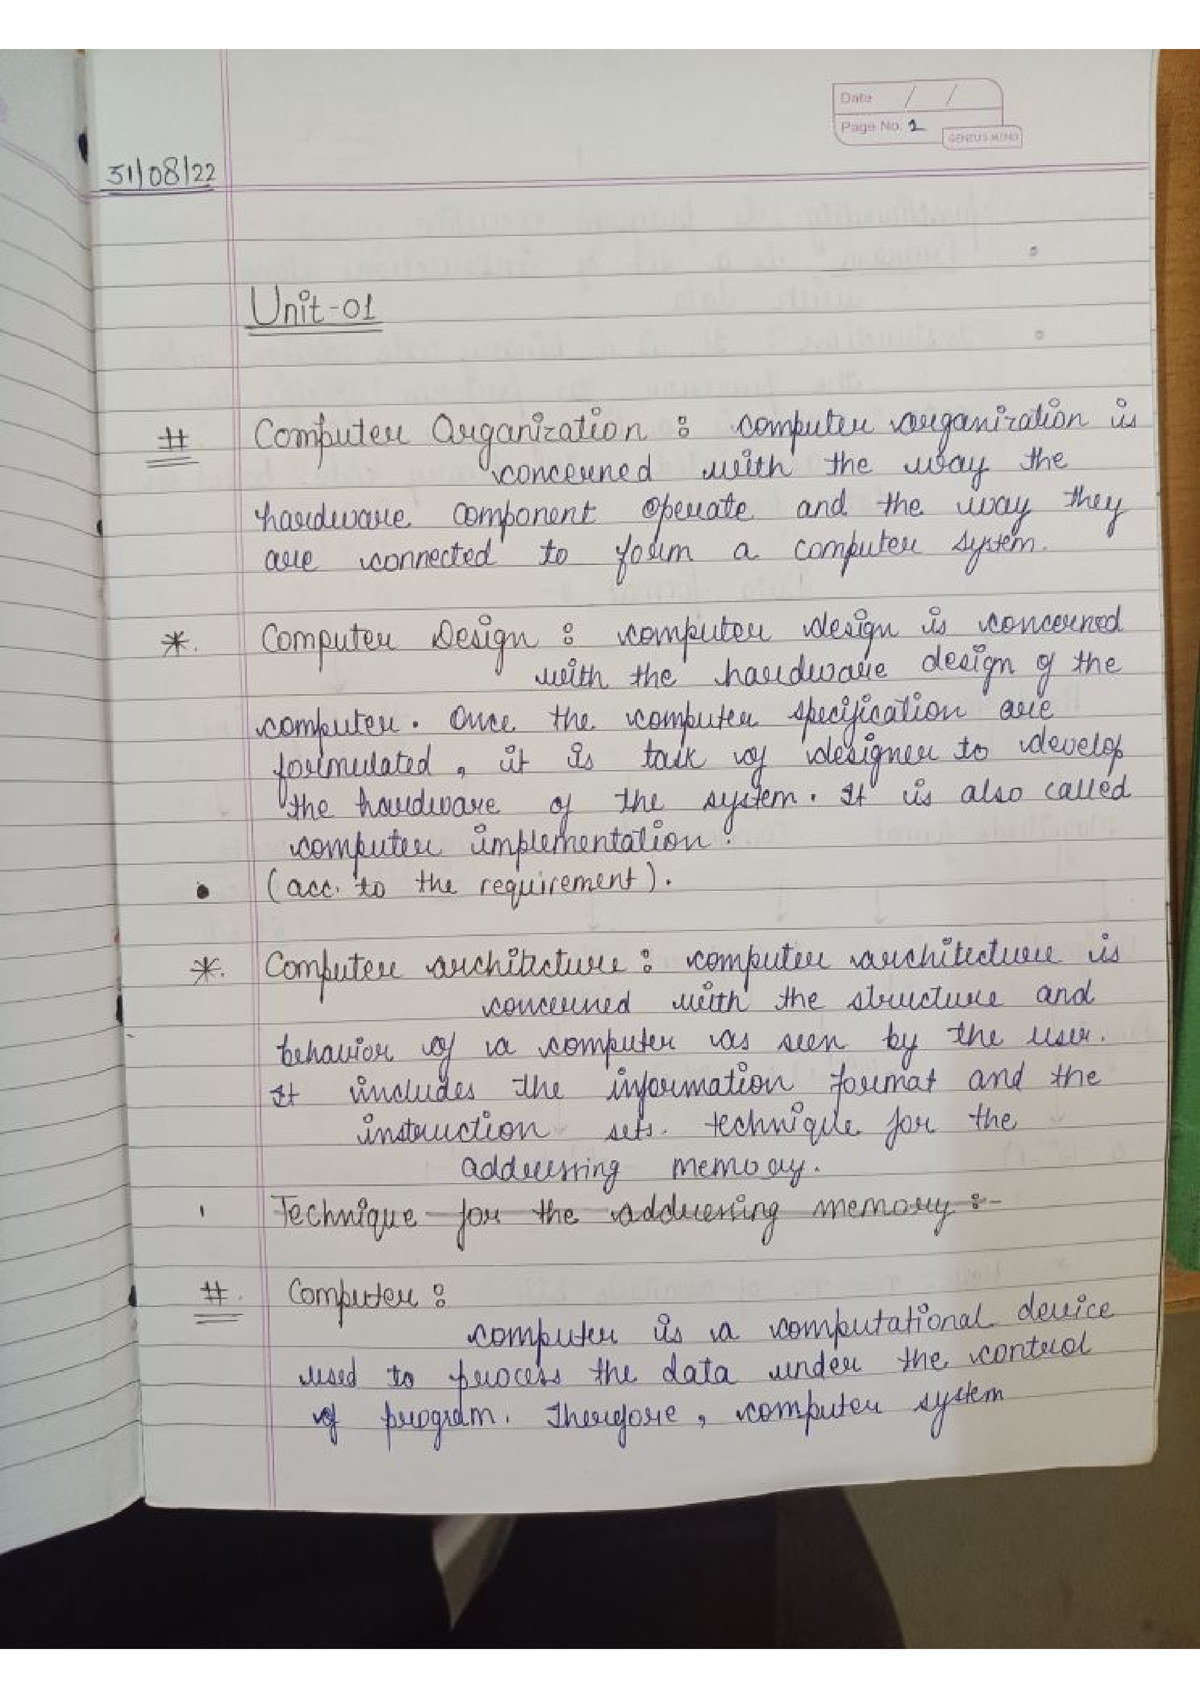 Date / /
Page No. 1
GENIUS MIND
31/08/22
Unit-01
# Computer Organization : computer organization is
concerned with the way the
hardware component operate and the way they
are connected to form a computer system.
*. Computer Design : computer design is concerned
with the hardware design of the
computer. Once the computer specification are
formulated, it is task of designer to develop
the hardware of the system. It is also called
computer implementation.
• (acc. to the requirement).
*. Computer architecture : computer architecture is
concerned with the structure and
behavior of a computer as seen by the user.
It includes the information format and the
instruction sets. technique for the
addressing memory.
Technique for the addressing memory :-
#. Computer :
computer is a computational device
used to process the data under the control
of program. Therefore, computer system